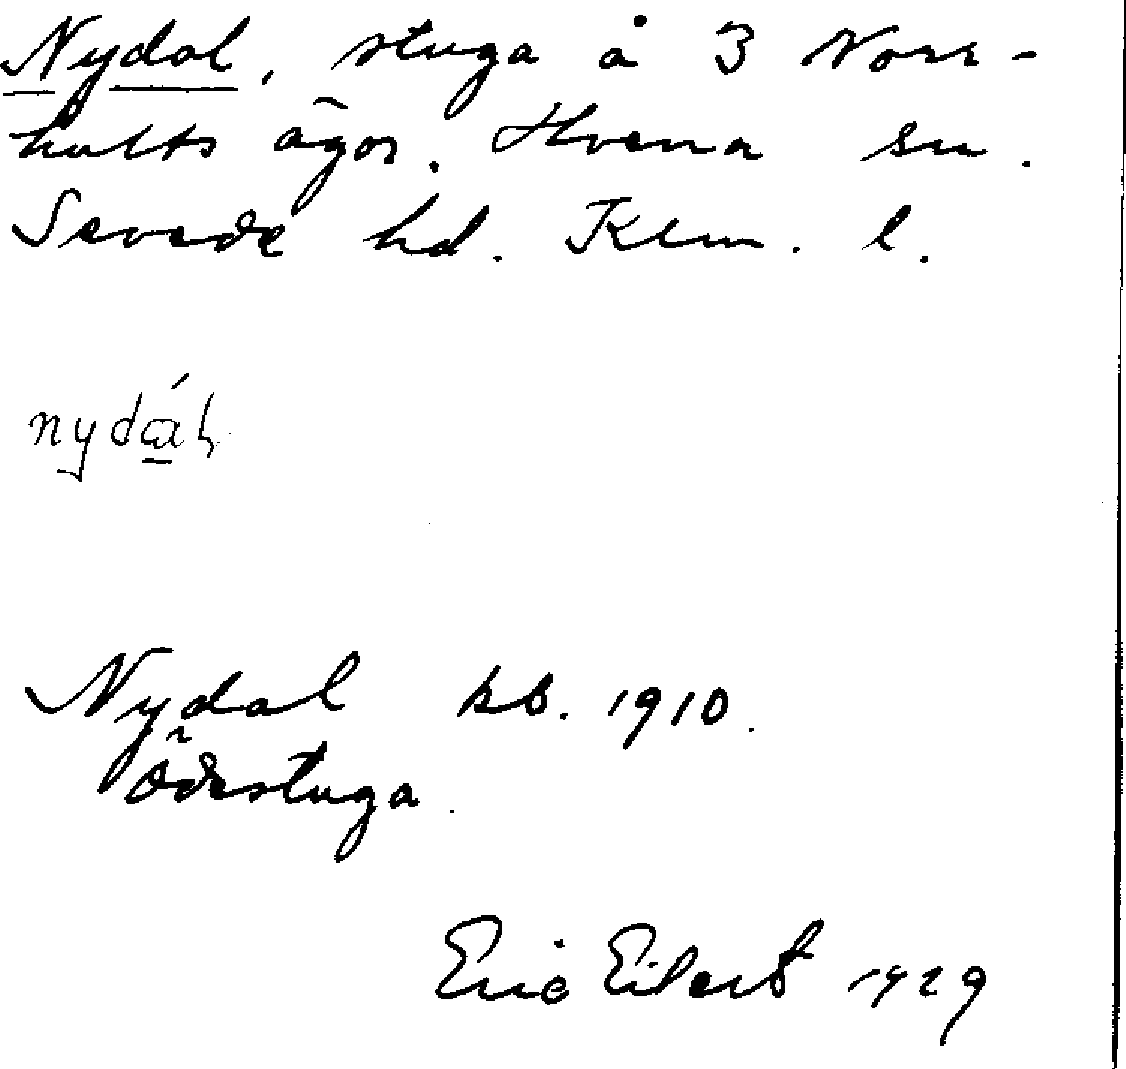 Nydal, stuga å 3 Norr-
hults ägor. Hvena sn.
Sevede hd. Klm. l.
nydál
Nydal kb. 1910.
Ödestuga.
Eric Eilert 1929